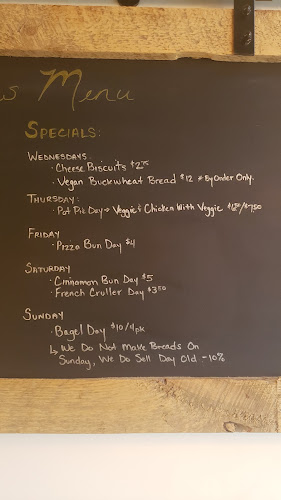 s Menu
SPECIALS:
WEDNESDAYS:
· Cheese Biscuits $2.75
· Vegan Buckwheat Bread $12 *By Order Only.
THURSDAY:
· Pot Pie Day → Veggie & Chicken With Veggie
FRIDAY
· Pizza Bun Day $4
SATURDAY
· Cinnamon Bun Day $5
· French Cruller Day $3.50
SUNDAY
· Bagel Day $10/4pk
↳ We Do Not Make Breads On
Sunday, We Do Sell Day Old -10%